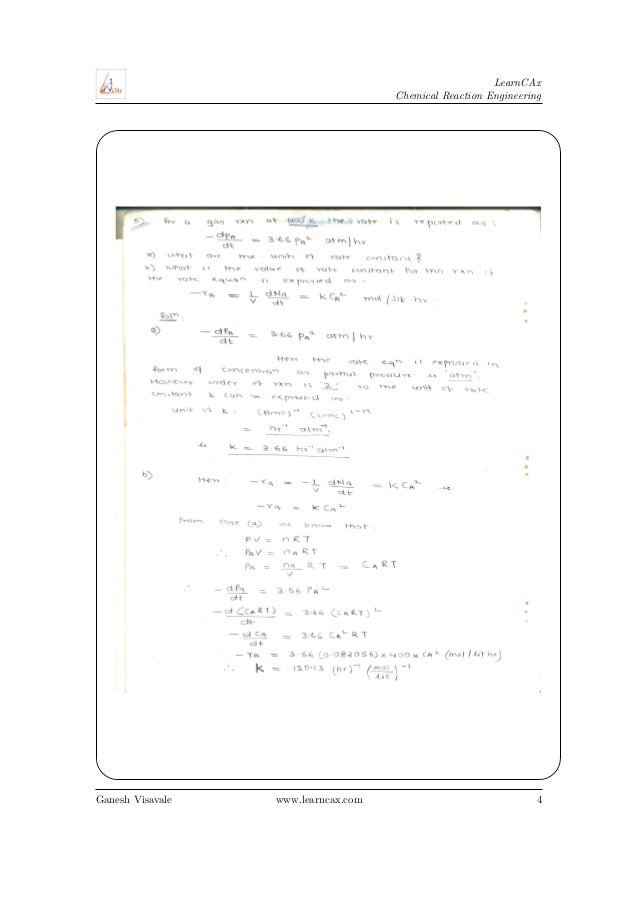 LearnCAx
Chemical Reaction Engineering
5) For a gas rxn at 400 K the rate is reported as :
-dPA/dt = 3.66 PA² atm/hr
a) what are the units of rate constant?
b) what is the value of rate constant for this rxn if
the rate equn is expressed as :
-rA = 1/V dNA/dt = k CA² mol/lit hr.
Soln:
a) -dPA/dt = 3.66 PA² atm/hr
Here the rate eqn is expressed in
form of concentran as partial pressure is 'atm'.
However order of rxn is '2' so the unit of rate
constant k can be expressed as:
unit of k : (time)⁻¹ (conc)¹⁻ⁿ
= hr⁻¹ atm⁻¹.
is k = 3.66 hr⁻¹ atm⁻¹
b) Here : -rA = -1/V dNA/dt = k CA² ie
-rA = k CA²
From case (a) we know that :
PV = nRT
∴ PAV = nA RT
PA = nA/V RT = CA RT
∴ -dPA/dt = 3.66 PA²
-d(CART)/dt = 3.66 (CART)²
-dCA/dt = 3.66 CA² RT
-rA = 3.66 (0.082056) x 400 x CA² (mol/lit hr)
∴ k = 120.13 (hr)⁻¹ (mol/lit)⁻¹
Ganesh Visavale www.learncax.com 4